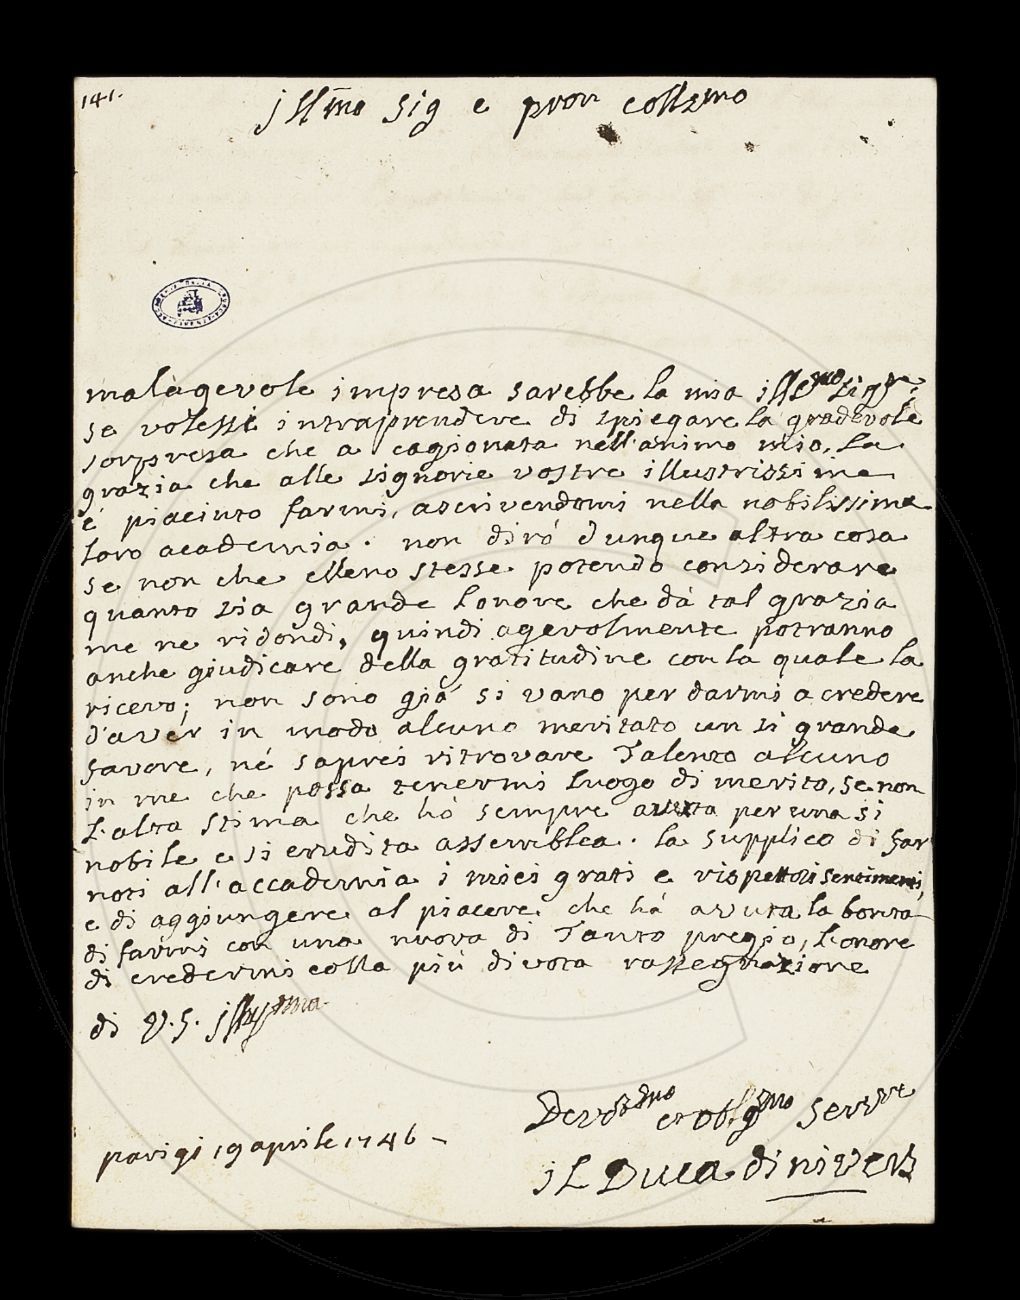 141.
illmo sig e pron collzmo
malagevole impresa sarebbe la mia
se volessi intraprendere di spiegare la gradevole
sorpresa che a cagionata nell'animo mio, la
grazia che alle signorie vostre illustrissime
é piaciuto farmi, ascrivendomi nella nobilissima
loro academia. non diró d'unque altra cosa
se non che elleno stesse potendo considerare
quanto sia grande l'onore che dà tal grazia
me ne ridondi, quindi agevolmente potranno
anche giudicare della gratitudine con la quale la
ricevo; non sono già si vano per darmi a credere
d'aver in modo alcuno meritato un si grande
favore, né saprei ritrovare Talento alcuno
in me che possa tenermi luogo di merito, se non
l'alta stima che hò sempre avuta per una si
nobile e si erudita assemblea. la supplico di far
noti all'accademia i miei grati e rispettosi sentimenti,
e di aggiungere al piacere che há avuta la bonta
di farmi con una nuova di Tanto pregio, l'onore
di credermi colla più divota rassegnazione
di V.S. illustrma
Devotzmo et obligzmo servre
parigi 19 aprile 1746 -
il Duca di nivers